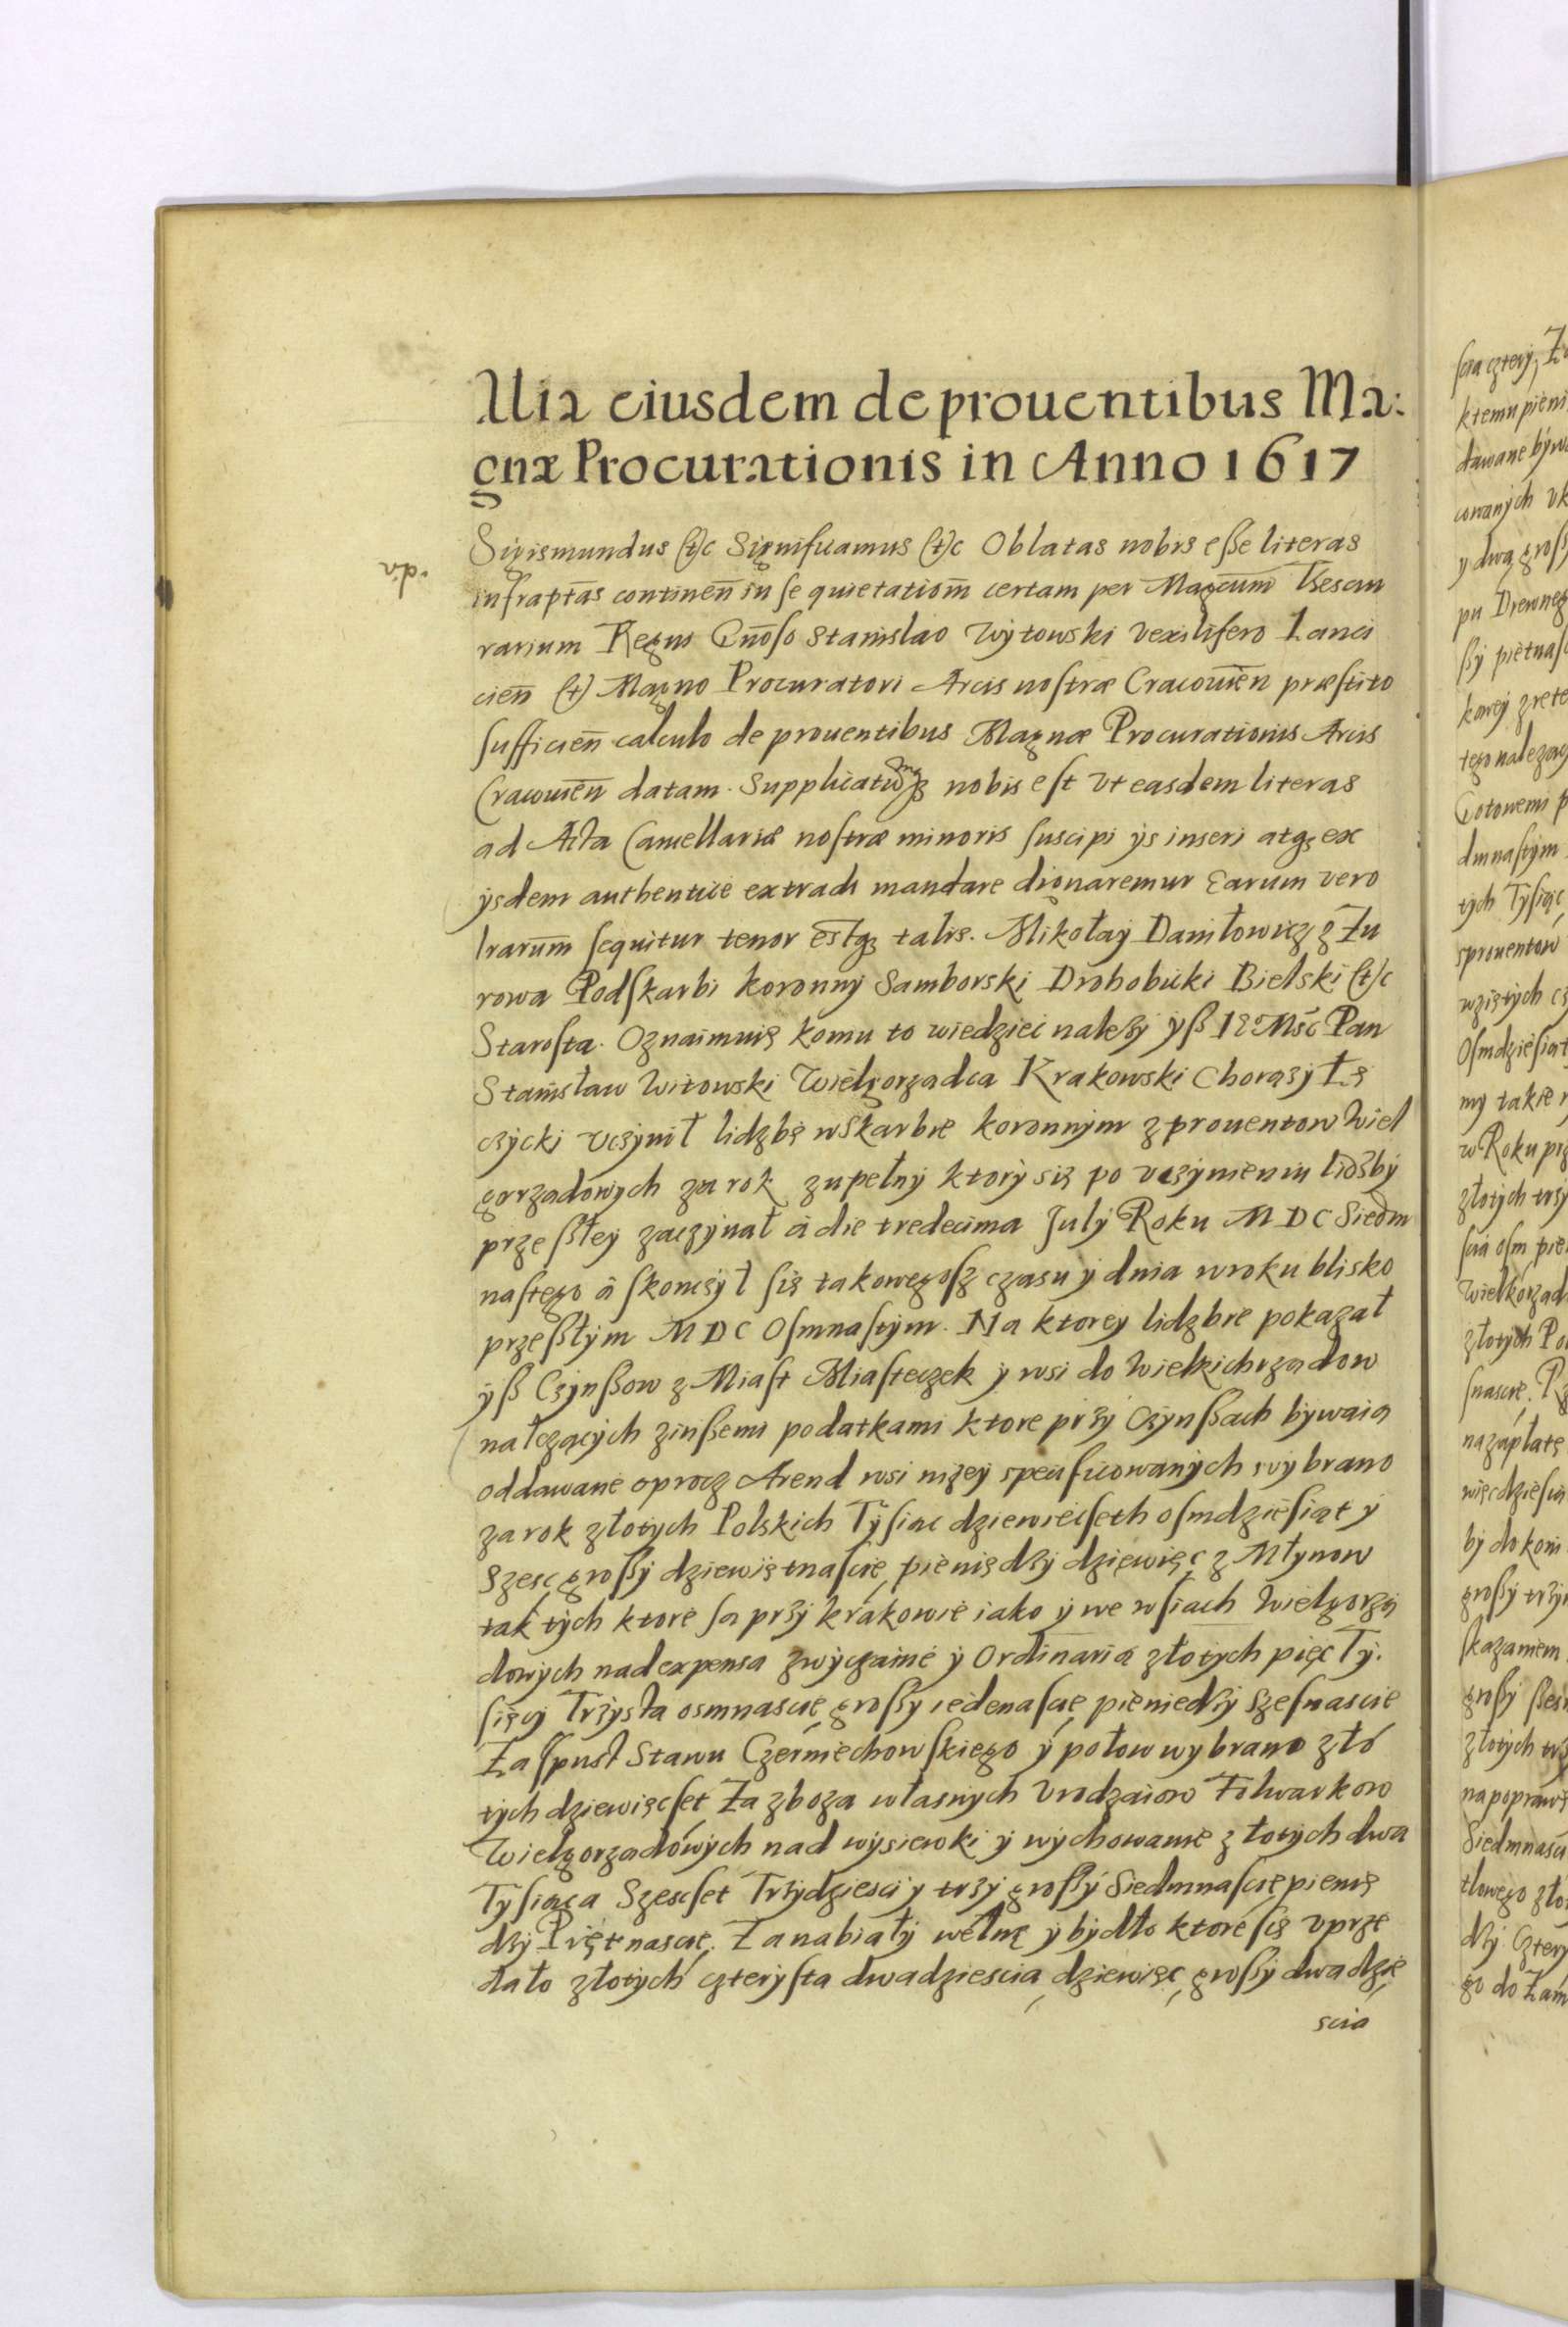 Alia eiusdem de prouentibus Ma:
gnæ Procurationis in Anno 1617
Sigismundus (t)c Significamus (t)c Oblatas nobis eße literas
infraptas continen̄ in se quietatiom̄ certam per Magcum̄ Thesau
rarium Regni Gn̄oso Stanislao Wytowski Vexilifero Lanci
cien̄ (t) Magno Procuratori Arcis nostræ Cracouien̄ præstito
sufficien̄ calculo de prouentibus Magnæ Procurationis Arcis
Cracouien̄ datam. nobis est Vt easdem literas
ad Acta Cancellariæ nostræ minoris suscipi ÿs inseri atqȝ ex
ÿsdem authentice extradi mandare dignaremur Earum vero
lrarum̄ sequitur tenor estqȝ talis. Mikołaÿ Daniłowicz z Żu
rowa Podskarbi koronnÿ Samborski Drohobicki Bielski (t)c
Starosta. Oznaimuię komu to wiedzieć należÿ ÿß IE Mść Pan
Stanisław Witowski Wielgorządca Krakowski Chorążÿ Łę
czÿcki vczÿnił lidzbę wskarbie koronnÿm z prouentow Wiel
gorządowÿch za rok zupełnÿ ktorÿ się po vczÿnieniu lidzbÿ
przeßłeÿ zaczÿnał á die tredecima Julÿ Roku MDC Siedm
nastego á skonczÿł się takowegosz czasu ÿ dnia wroku blisko
przeßłÿm MDC Osmnastÿm. Na ktoreÿ lidzbie pokazał
ÿß Czÿnßow z Miast Miasteczek ÿ wsi do Wielkichrzadow
należącÿch zinßemi podatkami ktore przÿ Czÿnßach bÿwaią
oddawane oprocz Arend wsi niżeÿ specificowanÿch wÿbrano
za rok złotÿch Polskich Tÿsiąc dziewiecseth osmdziesiąt ÿ
Szesć großÿ dziewiętnascie pieniędzÿ dziewięć z Młÿnow
tak tÿch ktore sa przÿ krakowie iako ÿ we wsiach Wielgorzą
dowÿch nad expensa zwÿczaine ÿ Ordinaria złotÿch pięć Tÿ.
sięcÿ Trzÿsta osmnascie großÿ iedenascie pieniedzÿ Szesnascie
Za spust Stawu Czerniechowskiego ÿ połow wybrano zło
tÿch dziewięcset Za zboza własnÿch Vrodzaiow Folwarkow
Wielgorzadowÿch nad wÿsiewki ÿ wÿchowanie złotÿch dwa
Tÿsiąca Szescset Trzÿdziesci ÿ trzÿ großÿ Siedmnascie pienię
dzÿ Piętnascie. Za nabiałÿ wełnę ÿ bÿdło ktore się vprze
dało złotÿch czterÿsta dwadziescia dziewięć großÿ dwadzie
scia